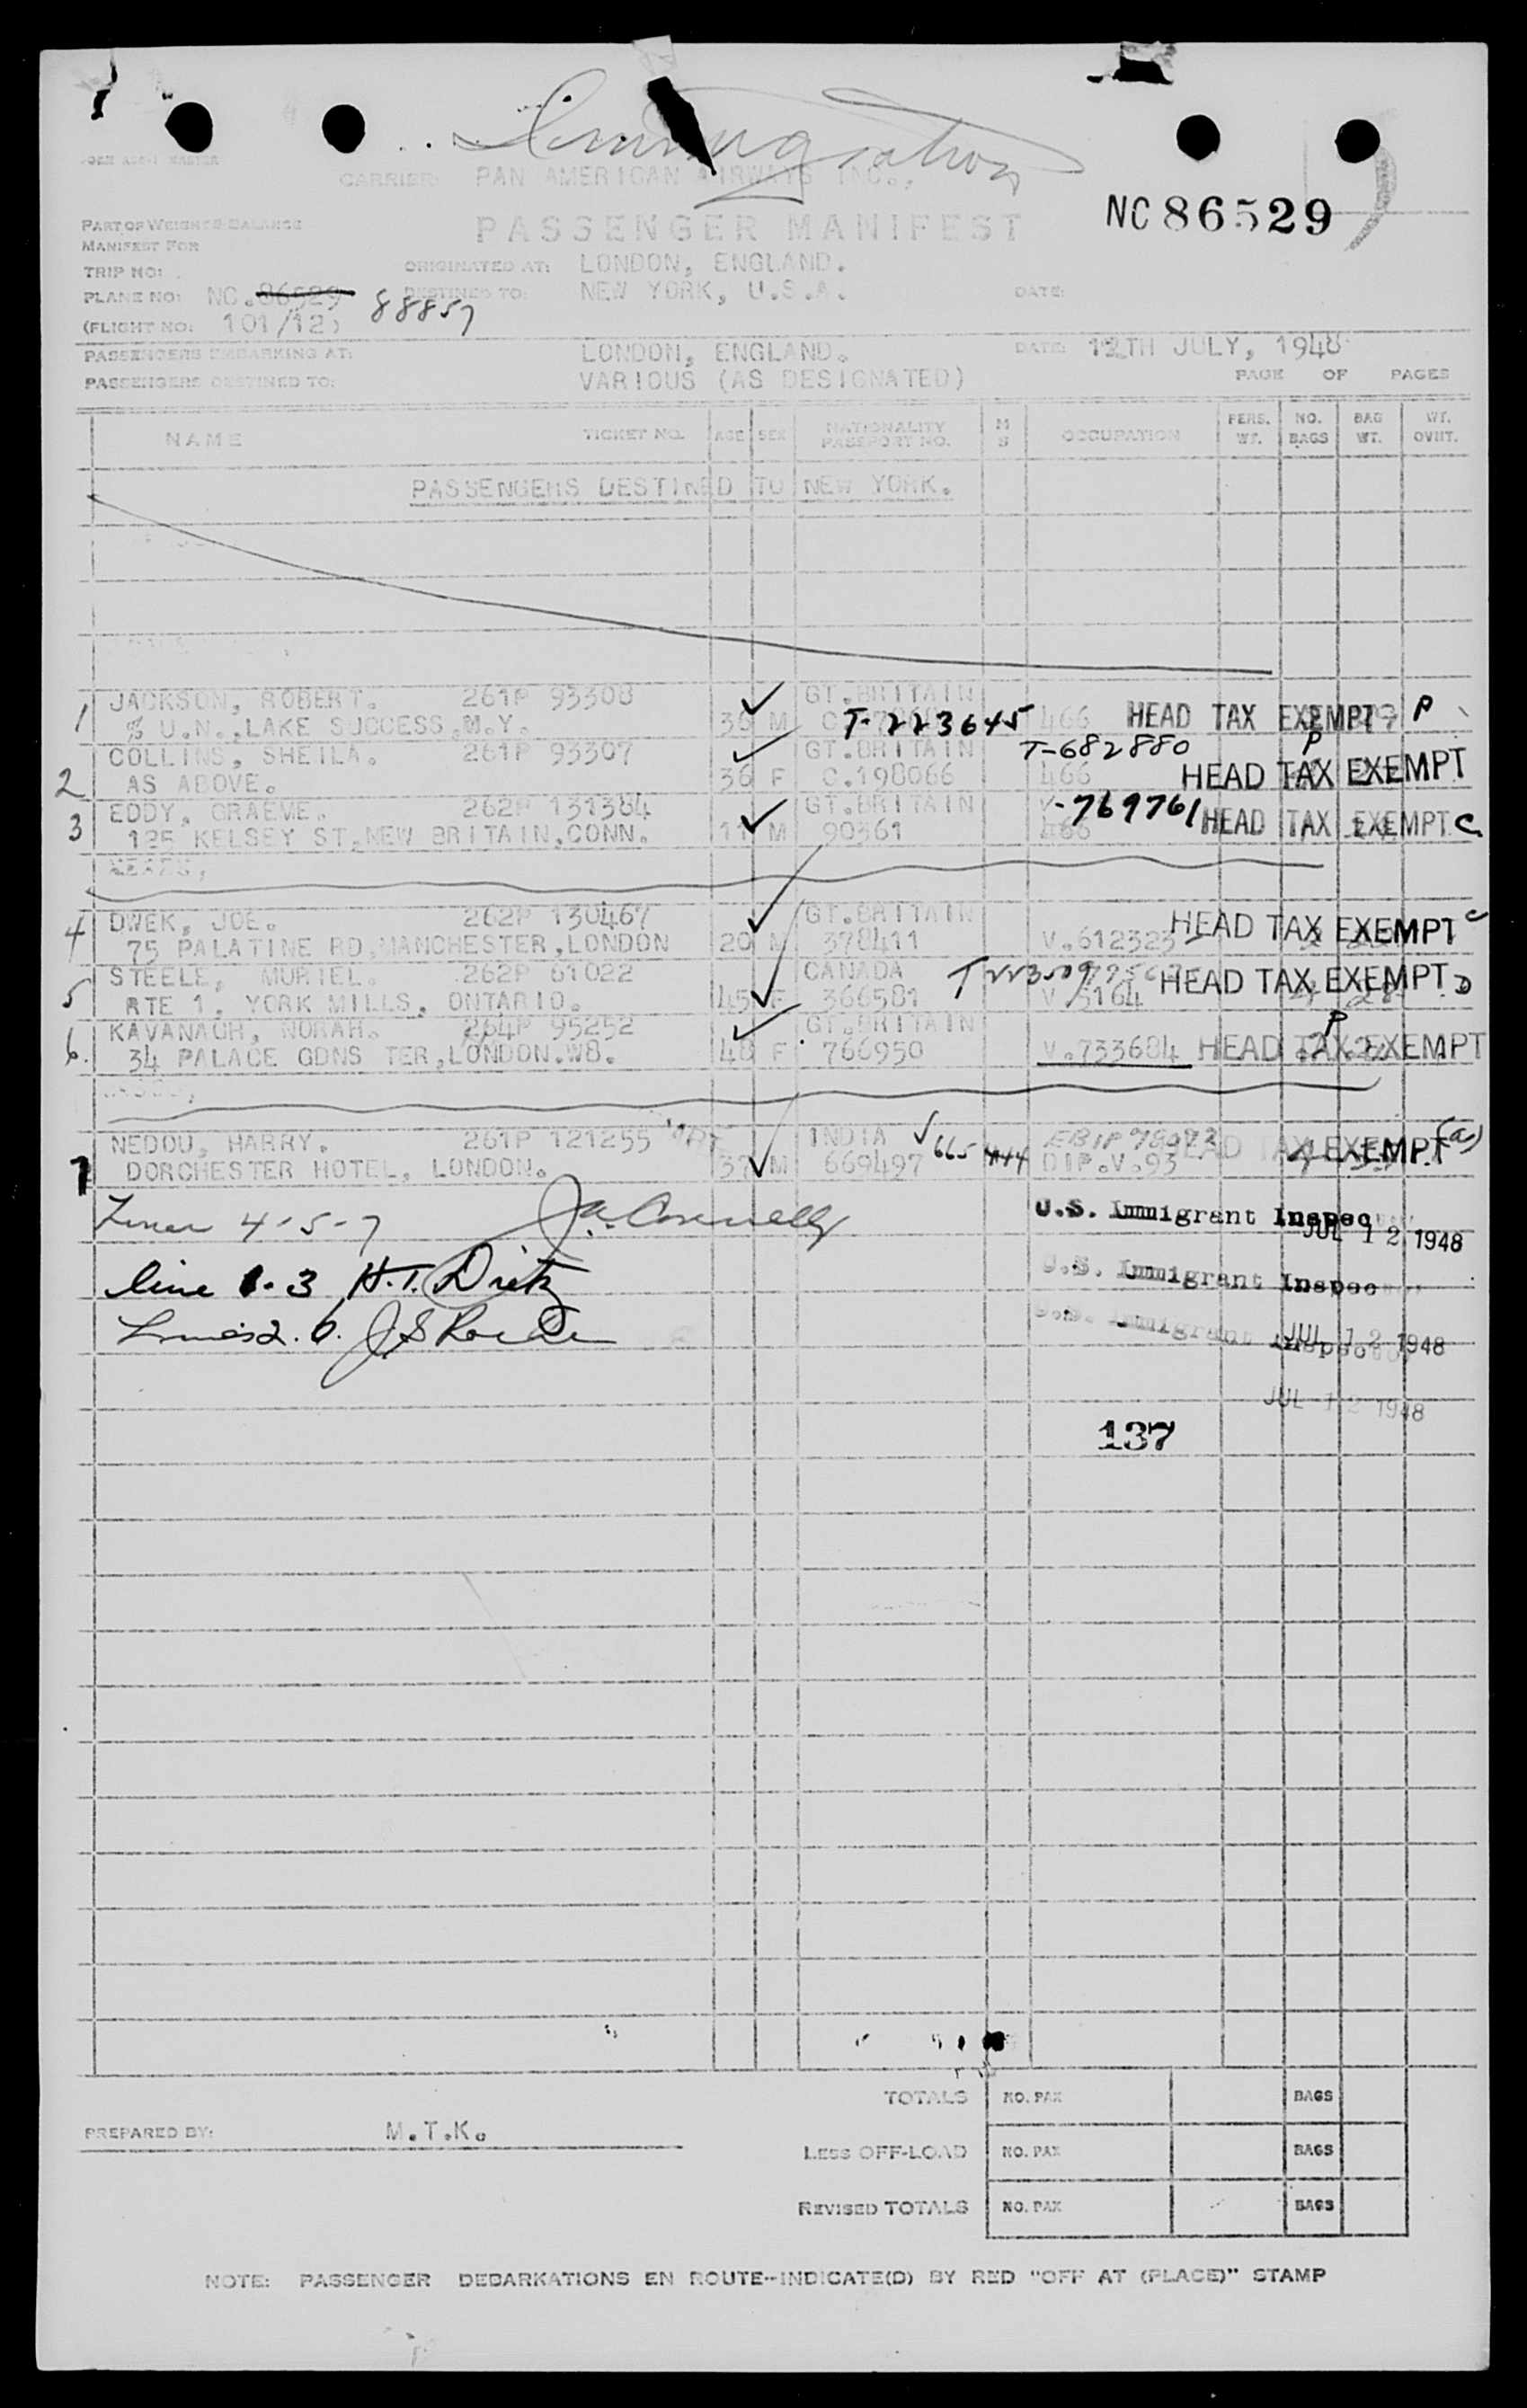 Immigration
CARRIER: PAN AMERICAN AIRWAYS INC.,
NC 86529
PART OF WEIGHT-BALANCE
PASSENGER MANIFEST
MANIFEST FOR
TRIP NO:
ORIGINATED AT: LONDON, ENGLAND.
PLANE NO: NC.86529 88857 DESTINED TO: NEW YORK, U.S.A. DATE:
(FLIGHT NO: 101/12)
PASSENGERS EMBARKING AT: LONDON, ENGLAND. DATE: 12TH JULY, 1948
PASSENGERS DESTINED TO: VARIOUS (AS DESIGNATED) PAGE OF PAGES
NAME TICKET NO. AGE SEX NATIONALITY PASSPORT NO. M S OCCUPATION PERS. WT. NO. BAGS BAG WT. WT. OVHT.
PASSENGERS DESTINED TO NEW YORK.
JACKSON, ROBERT. 261P 93308 GT.BRITAIN
1 % U.N., LAKE SUCCESS, N.Y. 36 M T-223645 466 HEAD TAX EXEMPT P
COLLINS, SHEILA. 261P 93307 GT.BRITAIN T-682880 P
2 AS ABOVE. 36 F C.198066 466 HEAD TAX EXEMPT
EDDY, GRAEME. 262P 131384 GT.BRITAIN V-769761
3 125 KELSEY ST, NEW BRITAIN, CONN. 11 M 90361 466 HEAD TAX EXEMPT C
4 DWEK, JOE. 262P 130467 GT.BRITAIN HEAD TAX EXEMPT C
75 PALATINE RD, MANCHESTER, LONDON 20 M 378411 V.612323
5 STEELE, MURIEL. 262P 61022 CANADA HEAD TAX EXEMPT D
RTE 1, YORK MILLS, ONTARIO. 45 F 366581 V.5164
6. KAVANAGH, NORAH. 264P 95252 GT.BRITAIN P
34 PALACE GDNS TER, LONDON.W8. 48 F 766950 V.733684 HEAD TAX EXEMPT
NEDOU, HARRY. 261P 121255 INDIA HEAD TAX EXEMPT (a)
7 DORCHESTER HOTEL, LONDON. 37 M 669497 665 DIP.V.93
4-5-7 J.A. Connelly U.S. Immigrant Inspec
JUL 12 1948
line 1-3 H.T. Dietz U.S. Immigrant Inspec
Lines 2. 6. U.S. Immigrant Inspector
JUL 12 1948
JUL 12 1948
137
TOTALS NO. PAX BAGS
PREPARED BY: M.T.K.
LESS OFF-LOAD NO. PAX BAGS
REVISED TOTALS NO. PAX BAGS
NOTE: PASSENGER DEBARKATIONS EN ROUTE--INDICATE(D) BY RED "OFF AT (PLACE)" STAMP